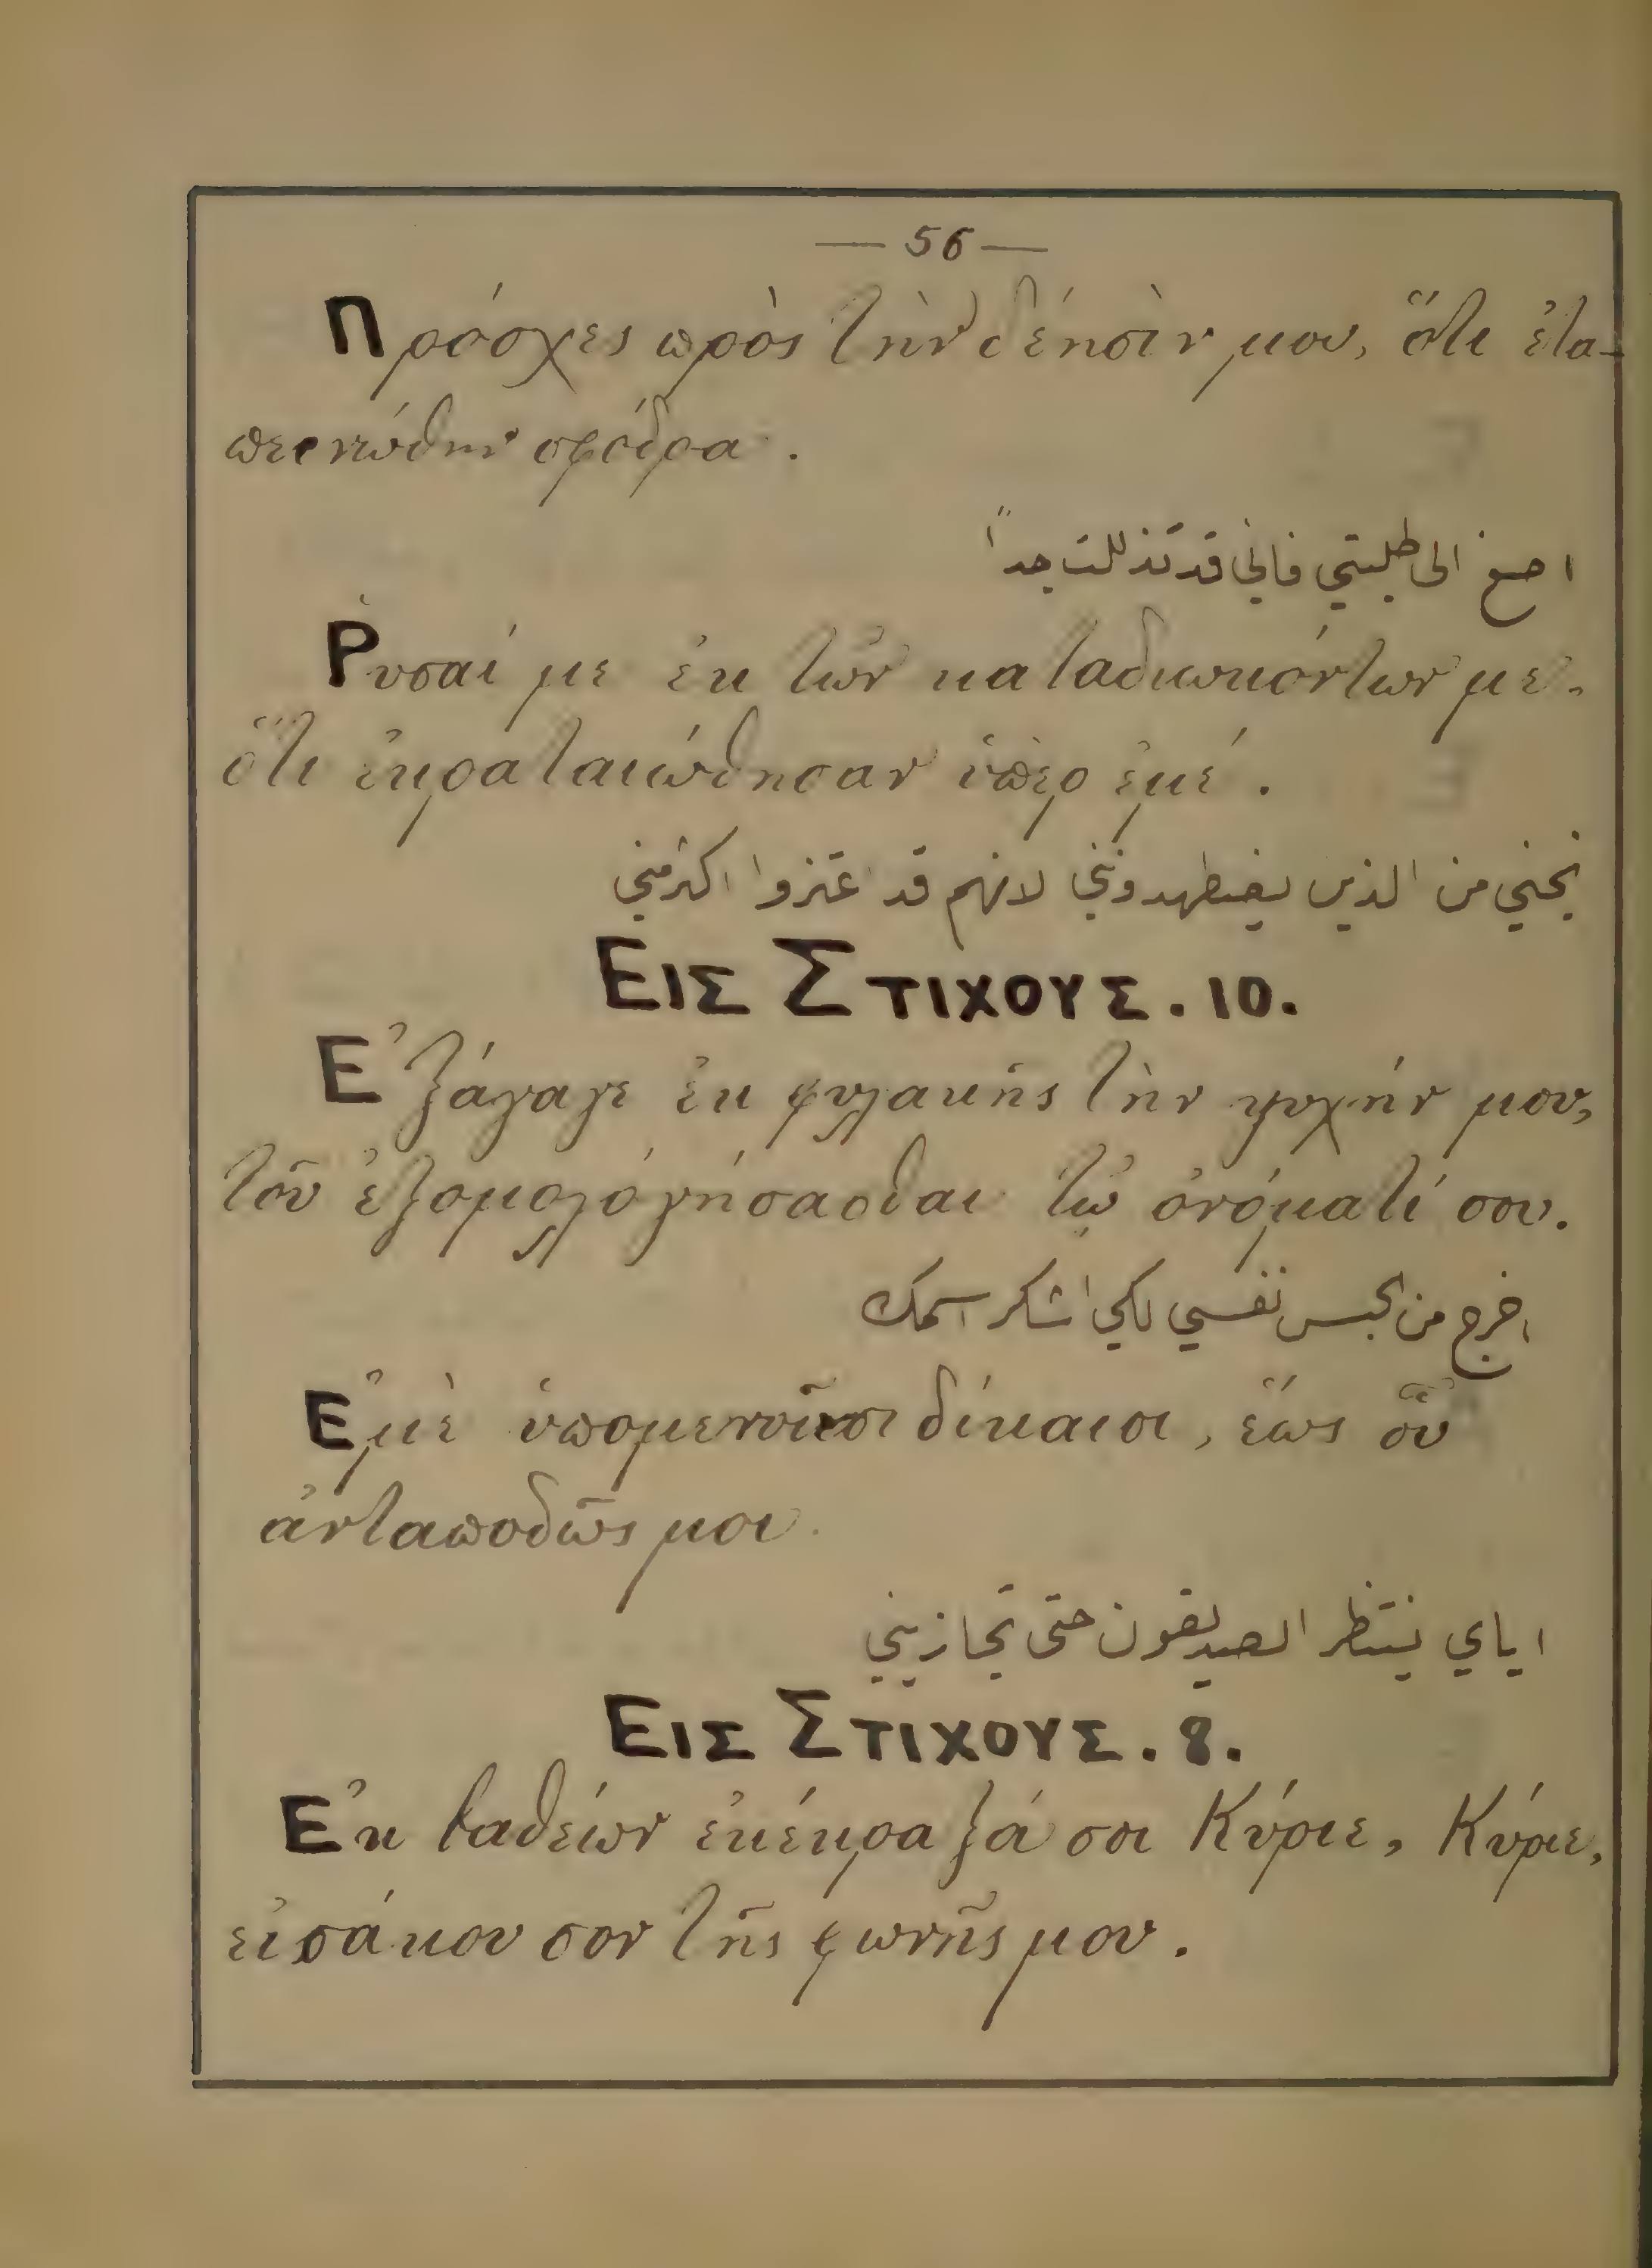 — 56 —
Πρόσχες πρὸς τὴν δέησίν μου, ὅτι ἐτα-
πεινώθην σφόδρα.
اصغ الى طلبتي فاني قد تذللت جداً
Ρυσαί με ἐκ τῶν καταδιωκόντων με.
ὅτι ἐκραταιώθησαν ὑπὲρ ἐμέ.
نجني من الذين يضطهدونني لانهم قد اعتزوا اكثر مني
ΕΙΣ ΣΤΙΧΟΥΣ. 10.
Ἐξάγαγε ἐκ φυλακῆς τὴν ψυχήν μου,
τοῦ ἐξομολογήσασθαι τῷ ὀνόματί σου.
اخرج من الحبس نفسي لكي اشكر اسمك
Ἐμὲ ὑπομενοῦσι δίκαιοι, ἕως οὗ
ἀνταποδῶς μοι.
اياي ينتظر الصديقون حتى تجازيني
ΕΙΣ ΣΤΙΧΟΥΣ. 8.
Ἐκ βαθέων ἐκέκραξά σοι Κύριε, Κύριε,
εἰσάκουσον τῆς φωνῆς μου.